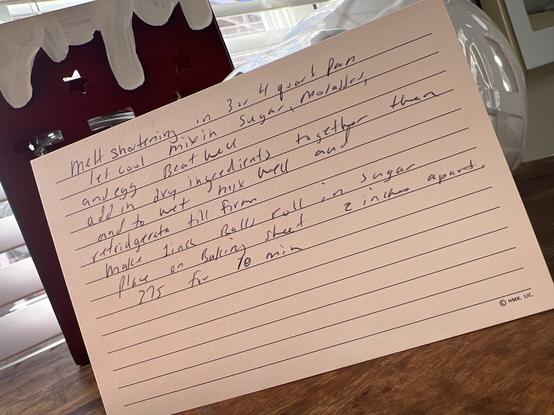 Melt shortening in 3 or 4 quart pan
let cool mix in sugar, molasses,
and egg Beat well
add in dry ingredients together then
and to wet mix well and
refridgerate till firm
make 1 inch Balls roll in sugar
place on Baking sheet 2 inches apart
375 for 10 min
© HMK. LIC.